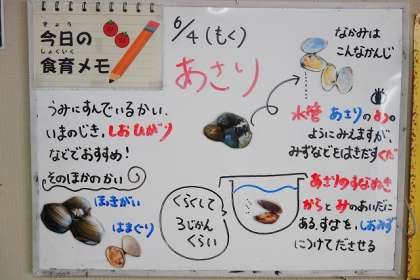 きょう
今日の
しょくいく
食育メモ
6/4(もく)
あさり
なかみは
こんなかんじ
うみにすんでいるかい、
いまのじき、しおひがり
などでおすすめ!
そのほかのかい
ほっきがい
はまぐり
水管 あさりの
ようにみえますが、
みずなどをはきだすくだ
くらくして
3じかん
くらい
あさりのすなぬき
からとみのあいだに
ある、すなを、しおみず
につけてださせる